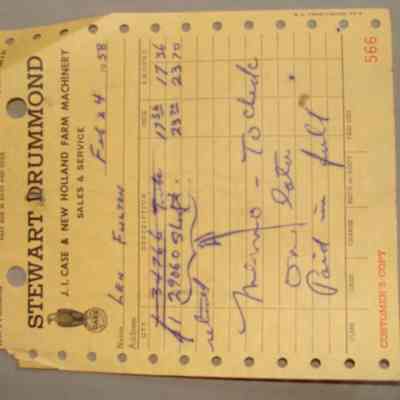 STEWART DRUMMOND
J. I. CASE & NEW HOLLAND FARM MACHINERY
SALES & SERVICE
Feb 24 1958
Name Len Fulton
Address
QTY. DESCRIPTION PRICE AMOUNT
1 34766 17.36 17.36
1 29060 Shaft 23.70 23.70
Memo - To check
on later
Paid in full
CLERK CHARGE PAID OUT
CUSTOMER'S COPY
566